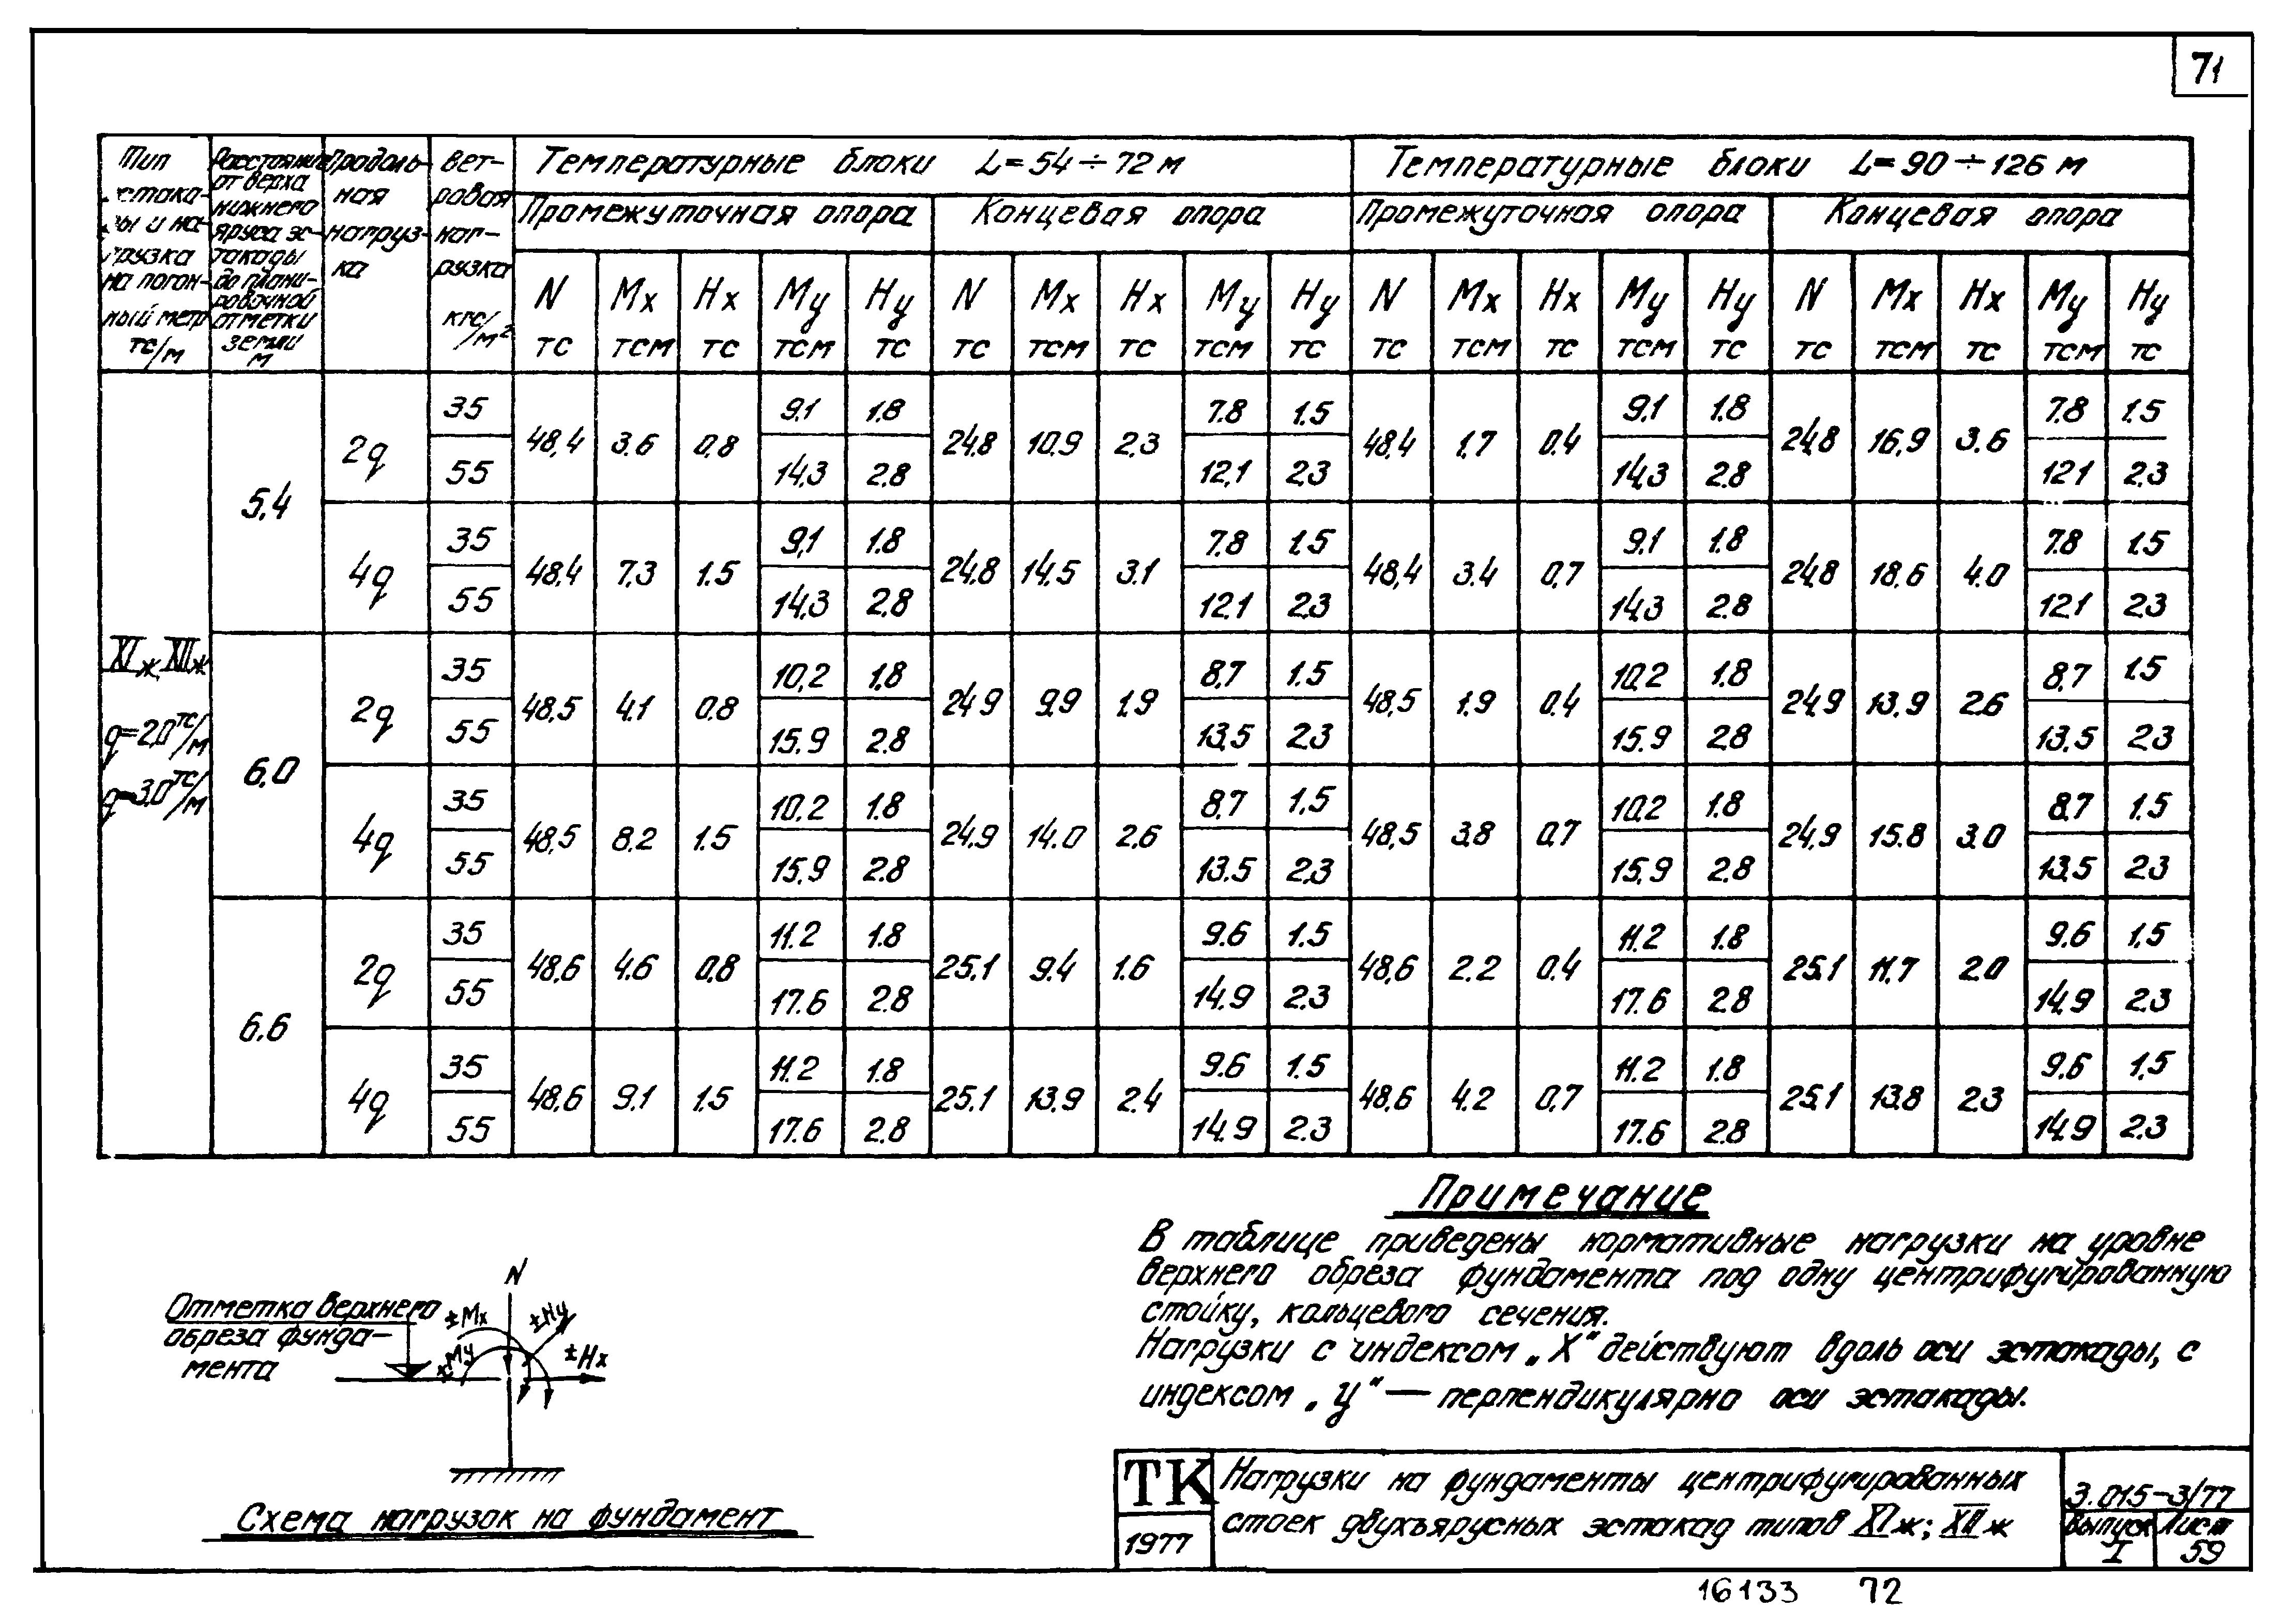 71
Тип эстакады и нагрузка на погонный метр тс/м
Расстояние от верха нижнего яруса эстакады до планировочной отметки земли м
Продольная нагрузка
Ветровая нагрузка кгс/м²
Температурные блоки L=54÷72 м
Температурные блоки L=90÷126 м
Промежуточная опора
Концевая опора
Промежуточная опора
Концевая опора
N Mx Hx My Hy N Mx Hx My Hy N Mx Hx My Hy N Mx Hx My Hy
тс тсм тс тсм тс тс тсм тс тсм тс тс тсм тс тсм тс тс тсм тс тсм тс
XIж, XIIж
q=2,0 тс/м
q=3.0 тс/м
5,4
2q
35 9.1 1.8 7.8 1.5 9.1 1.8 7.8 1.5
48,4 3.6 0,8 24,8 10,9 2,3 48,4 1,7 0.4 24,8 16,9 3.6
55 14,3 2.8 12,1 2,3 14,3 2.8 121 2,3
4q
35 9,1 1.8 7.8 1.5 9.1 1.8 7.8 1.5
48,4 7,3 1.5 24,8 14,5 3,1 48,4 3.4 0,7 24,8 18,6 4.0
55 14,3 2,8 12,1 2,3 14,3 2.8 121 23
6,0
2q
35 10,2 1.8 8,7 1.5 10,2 1.8 8,7 1.5
48,5 4,1 0.8 24 9 9,9 1,9 48,5 1.9 0.4 24,9 13,9 2.6
55 15.9 2.8 13,5 2,3 15.9 28 13,5 23
4q
35 10.2 1.8 8,7 1.5 10,2 1.8 8,7 1.5
48,5 8.2 1.5 24,9 14.0 2,6 48,5 3,8 0,7 24,9 15.8 3.0
55 15,9 2.8 13.5 2,3 15,9 2.8 13,5 2.3
6,6
2q
35 11.2 1.8 9.6 1.5 11.2 1.8 9.6 1,5
48,6 4.6 0,8 25.1 9.4 1.6 48,6 2.2 0.4 25,1 11,7 2.0
55 17.6 2.8 14,9 2.3 17.6 2.8 14,9 2.3
4q
35 11.2 1.8 9.6 1.5 11.2 1.8 9.6 1,5
48,6 9.1 1.5 25.1 13,9 2.4 48,6 4.2 0,7 25,1 13,8 2.3
55 17.6 2.8 14.9 2.3 17.6 2.8 14,9 2.3
Примечание
В таблице приведены нормативные нагрузки на уровне
верхнего обреза фундамента под одну центрифугированную
стойку, кольцевого сечения.
Нагрузки с индексом „X“ действуют вдоль оси эстакады, с
индексом „У“ — перпендикулярно оси эстакады.
N
±Mx
±Hy
±My
±Hx
Отметка верхнего
обреза фунда-
мента
Схема нагрузок на фундамент
ТК
1977
Нагрузки на фундаменты центрифугированных
стоек двухъярусных эстакад типов XIж; XIIж
3.015-3/77
Выпуск I
Лист 59
16133 72